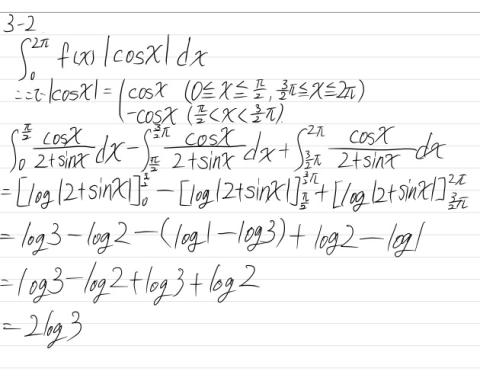 3-2
∫₀^{2π} f(x) |cosx| dx
ここで |cosx| = { cosx (0 ≤ x ≤ π/2, 3/2π ≤ x ≤ 2π)
-cosx (π/2 < x < 3/2π)
∫₀^{π/2} cosx/(2+sinx) dx - ∫_{π/2}^{3/2π} cosx/(2+sinx) dx + ∫_{3/2π}^{2π} cosx/(2+sinx) dx
= [log|2+sinx|]₀^{π/2} - [log|2+sinx|]_{π/2}^{3/2π} + [log|2+sinx|]_{3/2π}^{2π}
= log3 - log2 - (log1 - log3) + log2 - log1
= log3 - log2 + log3 + log2
= 2log3